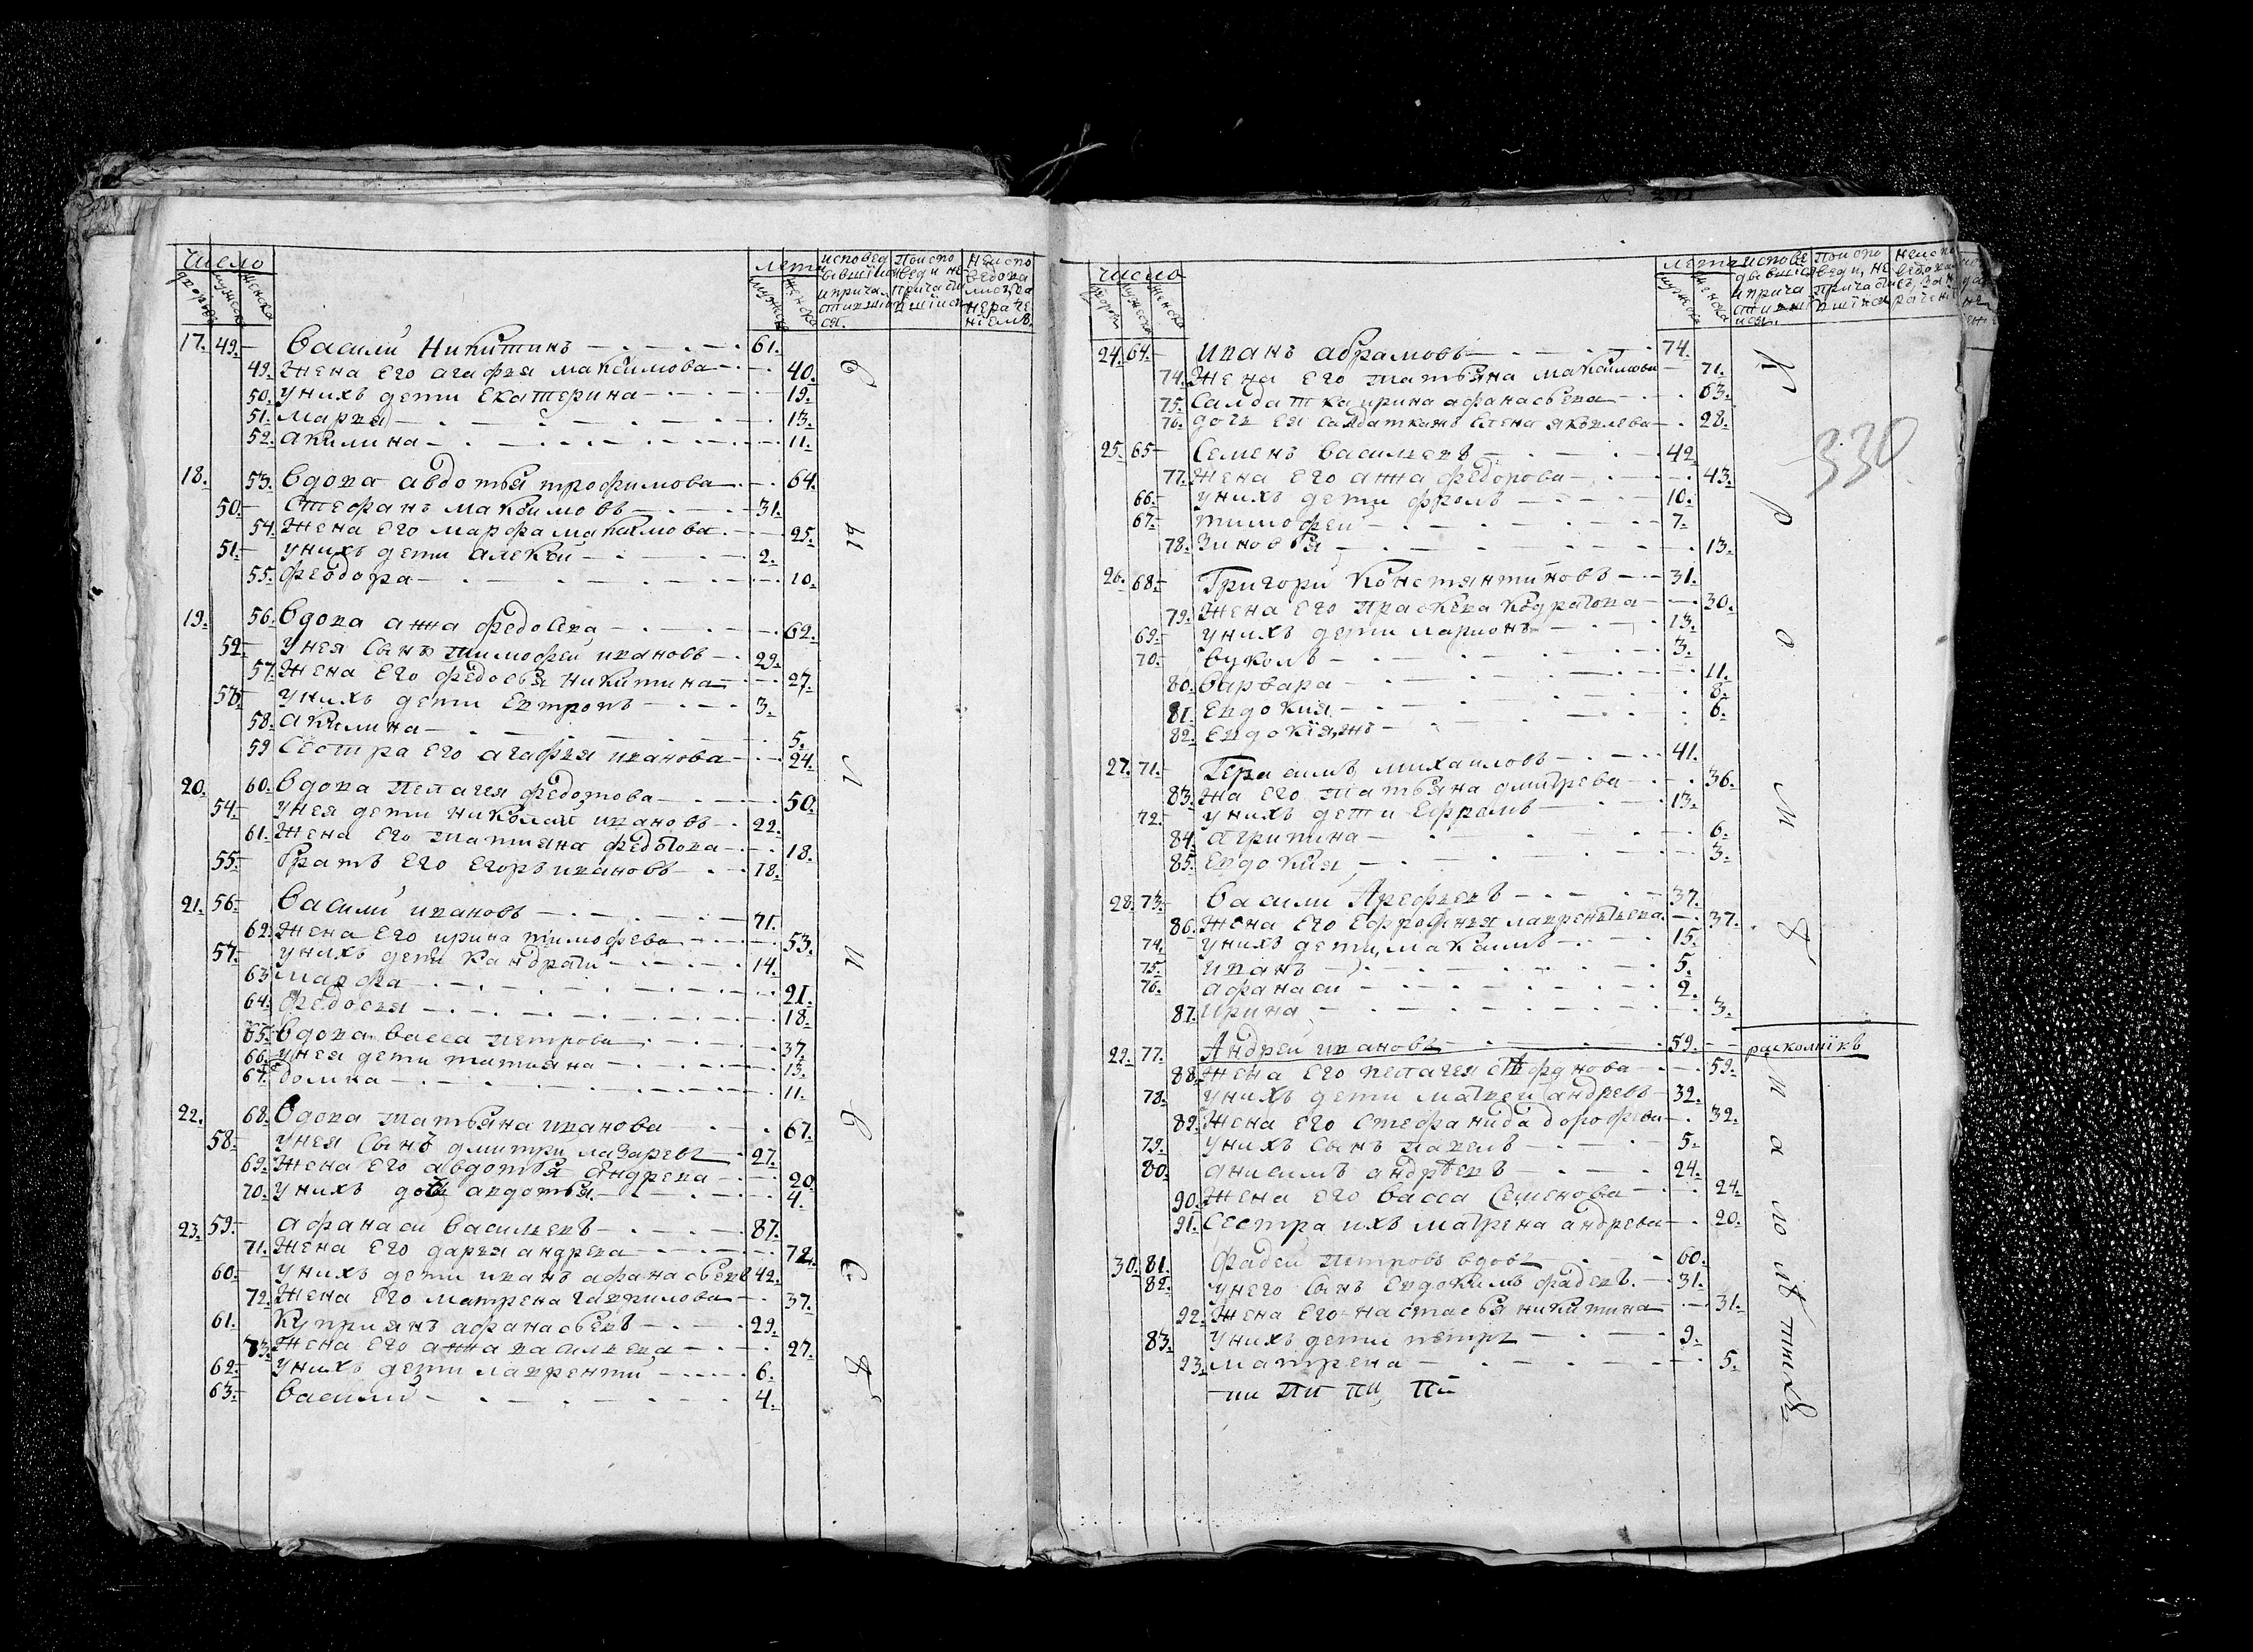 Число
дворовъ мужеска женска
лета
мужеска женска
исповед
авшiися
и прича
стившiи
ся.
По испо
веди не
причасти
вшiися
Не испо
ведова
нера че
нiемъ.
17. 49. Васили Никитинъ 61.
49. Жена его агафiя максимова 40.
50. у нихъ дети Екатерина 19.
51. Мария 13.
52. Акилина 11.
18. 53. Вдова авдотья трофимова 64.
50. Стефанъ максимовъ 31.
54. Жена его марфа максимова 25.
51. у нихъ дети алексей 2.
55. феодора 10.
19. 56. Вдова анна 62.
52. у нея сынъ тимофей ивановъ 29.
57. Жена его федосья никитина 27.
53. у нихъ дети 3.
58. Акилина 5.
59 Сестра его агафия иванова 24.
20. 60. Вдова пелагея федотова 50.
54. у нея дети николай ивановъ 22.
61. Жена его татияна 18.
55. Братъ его егоръ ивановъ 18.
21. 56. Васили ивановъ 71.
62. Жена его ирина тимофева 53.
57. у нихъ дети кандрати 14.
63 марфа 21.
64. федосея 18.
65. Вдова васса петрова 37.
66. у нея дети татияна 13.
67. домна 11.
22. 68. Вдова татьяна иванова 67.
58. у нея сынъ дмитри лазаревъ 27.
69. Жена его авдотья андрева 20
70. у нихъ дочь авдотья 4.
23. 59. Афанаси васильевъ 87.
71. Жена его дарья андрева 72.
60. у нихъ дети иванъ афанасьевъ 42.
72. Жена его матрена гаврилова 37.
61. Куприянъ афанасьевъ 29.
73. Жена его анна васильева 27.
62. у нихъ дети лаврентий 6.
63. Васили 4.
Число
дворовъ мужеска женска
лета
мужеска женска
исповe
давшiися
и прича
По испо
веди, не
причасти
вшiися
Не испо
24. 64. Иванъ абрамовъ 74.
74. Жена его татьяна максимова 71.
75. Салдатка ирина афанасьева 63.
76. дочь ея салдаткажъ елена яковлева 28.
25. 65 Семенъ васильевъ 42
77. Жена его анна федорова 43.
66. у нихъ дети фролъ 10.
67. тимофей 7.
78. Зиновья 13.
26. 68. Григори константиновъ 31.
79. Жена его прасковя 30.
69. у нихъ дети ларионъ 13.
70. вуколъ 3.
80. варвара 11.
81. Евдокия 8.
82. Евдокiя, жъ 6.
27. 71. Герасимъ михаиловъ 41.
83. Жа его татьяна дмитрева 36.
72. у нихъ дети ефремъ 13.
84. агрипина 6.
85. Евдокия 3.
28. 73. Васили Арефьевъ 37.
86. Жена его Ефрофинья лаврентьева 37.
74. у нихъ дети, максимъ 15.
75. иванъ 5.
76. афанаси 2.
87. Ирина 3.
29. 77. Андрей ивановъ 59. расколникъ
88. Жена его пелагея стефанова 59.
78. у нихъ дети матвей андревъ 32.
89. Жена его стефанида дорофева 32.
79. у нихъ сынъ павелъ 5.
80. Анисимъ андреевъ 24.
90. Жена его васса семенова 24.
91. Сестра ихъ матрена андрева 20.
30. 81. Фадей петровъ вдовъ 60.
82. у него сынъ евдокимъ фадеевъ 31.
92. Жена его настасья никитина 31.
83. у нихъ дети петръ 9.
93. матрена 5.
330